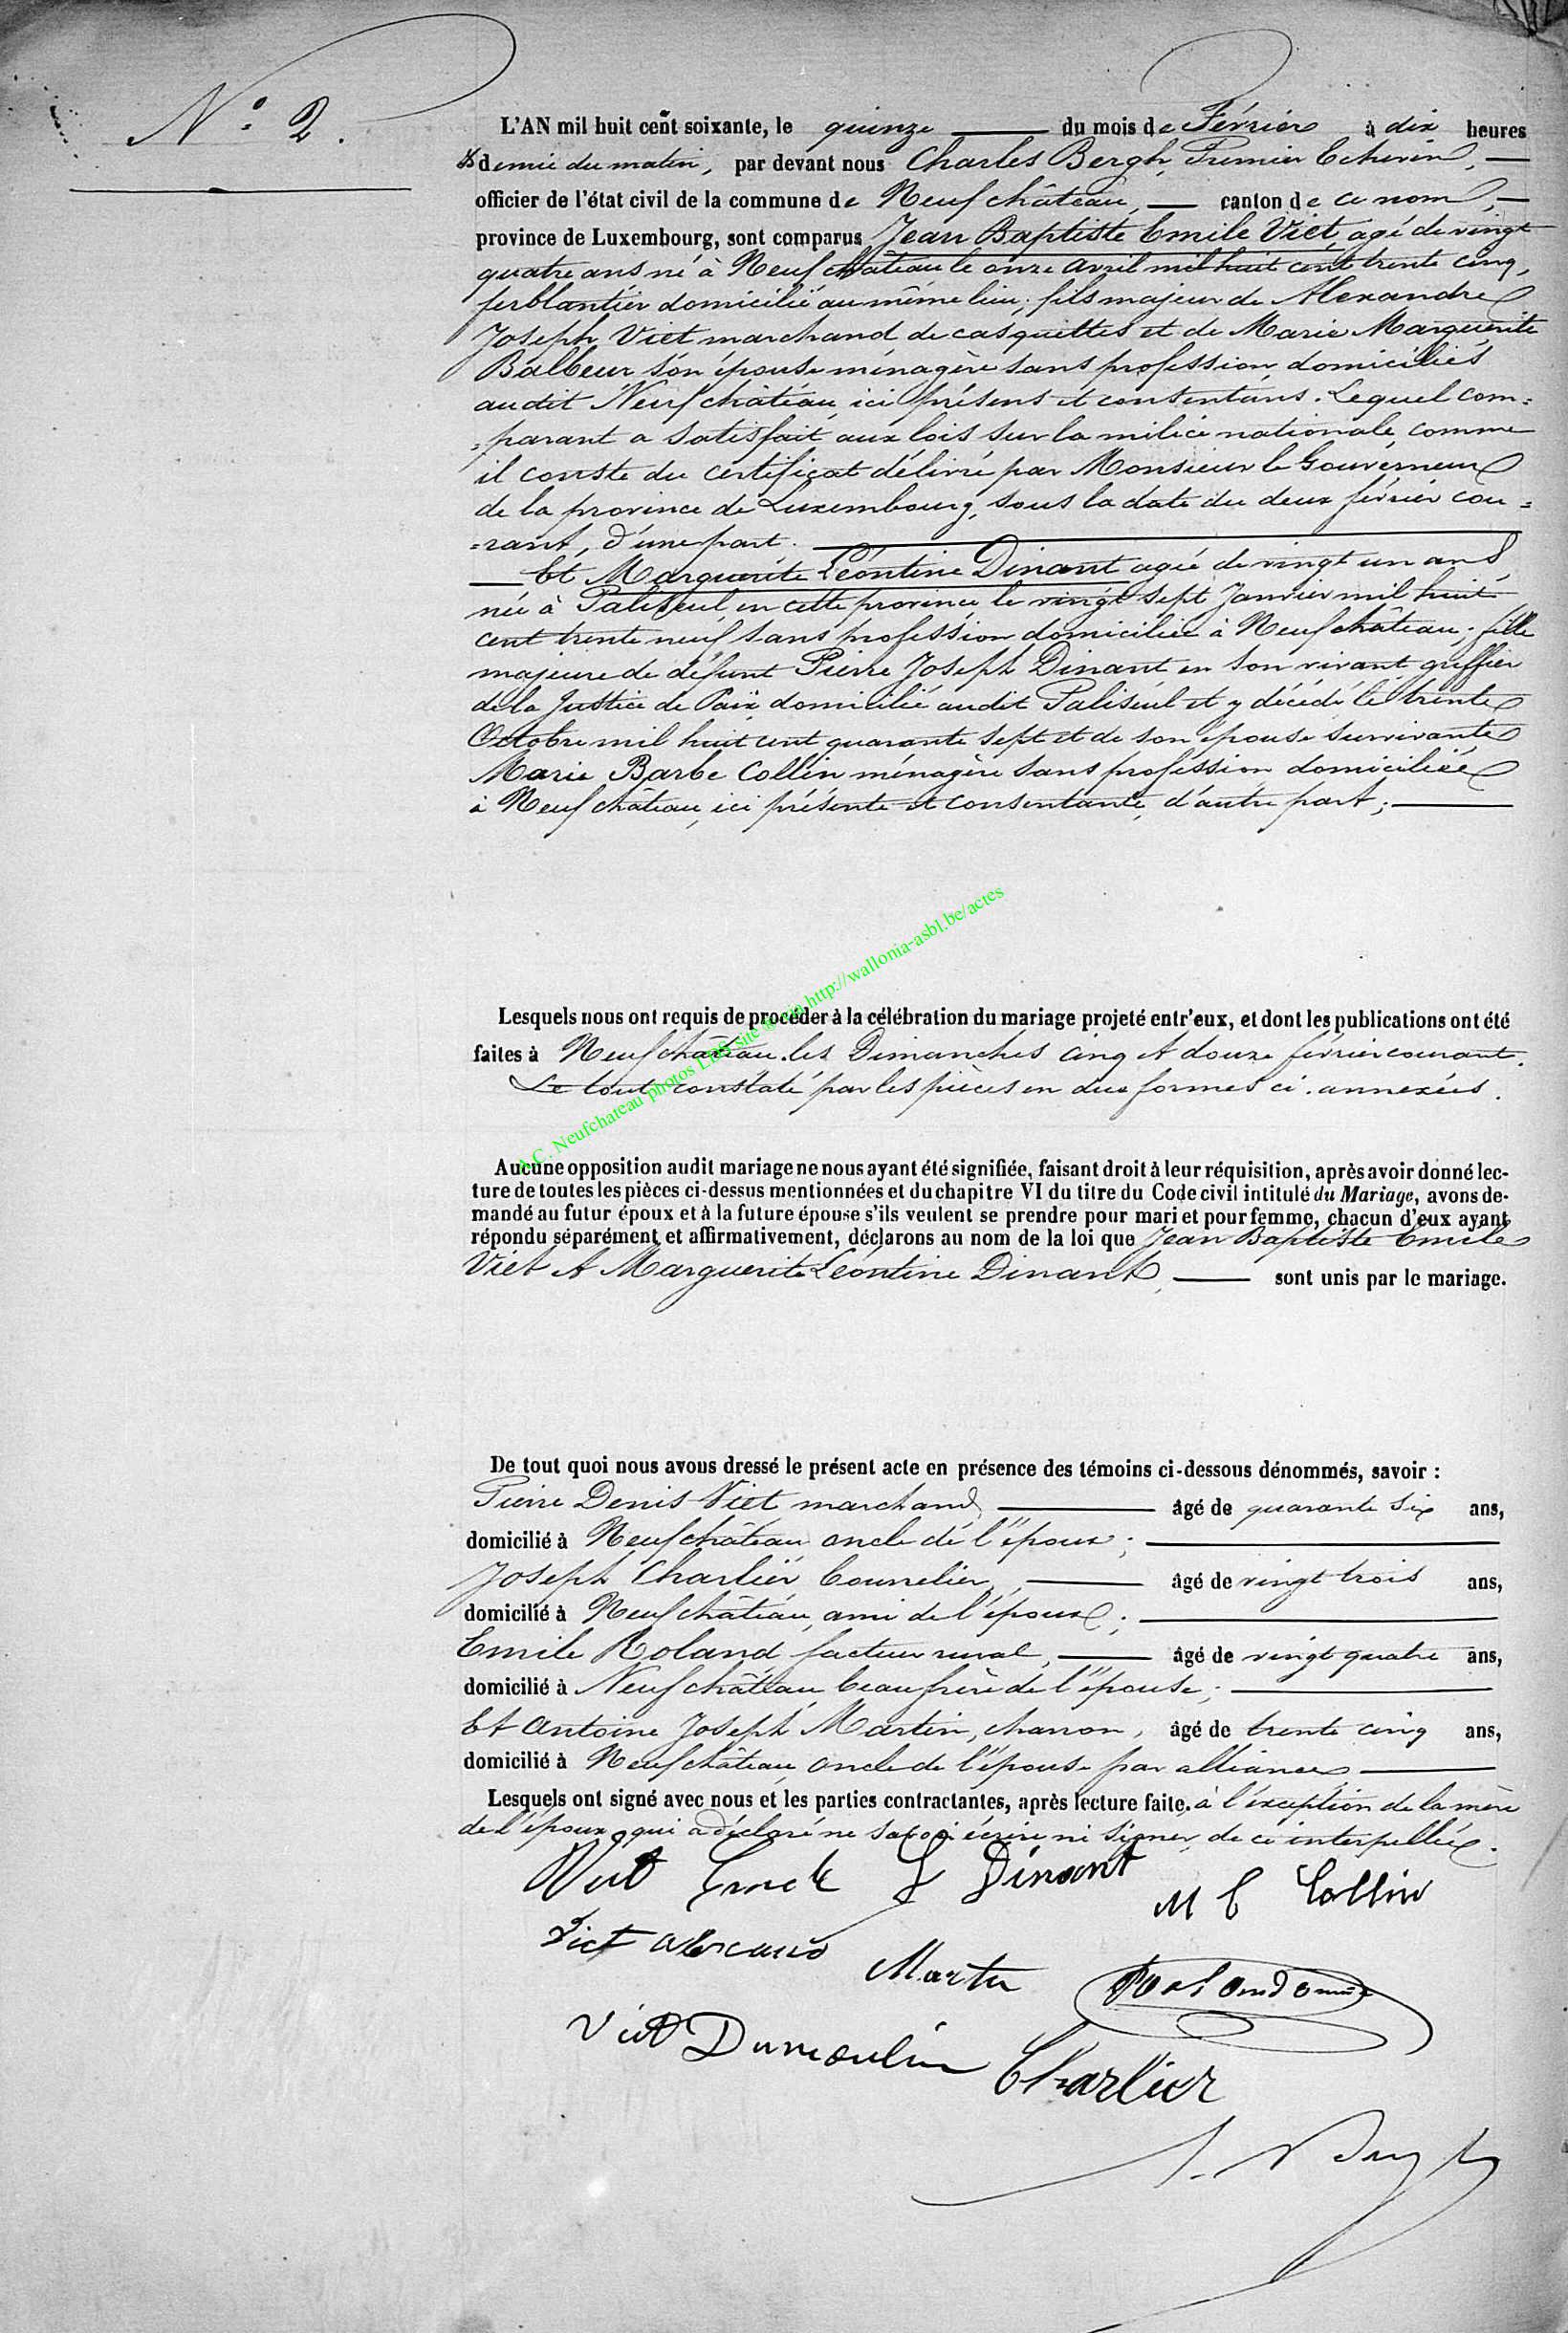 N° 2.
L'AN mil huit cent soixante, le quinze du mois de Février à dix heures
& demie du matin, par devant nous Charles Bergh, Premier Echevin,
officier de l'état civil de la commune de Neufchâteau, canton de ce nom,
province de Luxembourg, sont comparus Jean Baptiste Emile Viet agé de vingt
quatre ans né à Neufchâteau le onze avril mil huit cent trente cinq,
ferblantier domicilié au même lieu; fils majeur de Alexandre
Joseph Viet marchand de casquettes et de Marie Marguerite
Balbeur son épouse ménagère sans profession domiciliés
audit Neufchâteau, ici présens et consentans. Lequel com=
=parant a satisfait aux lois sur la milice nationale comme
il conste du certificat délivré par Monsieur le Gouverneur
de la province de Luxembourg, sous la date du deux février cou=
=rant, d'une part.
Et Marguerite Léontine Dinant agée de vingt un ans
née à Paliseul, en cette province, le vingt sept Janvier mil huit
cent trente neuf sans profession domiciliée à Neufchâteau; fille
majeure de défunt Pierre Joseph Dinant, en son vivant greffier
de la Justice de Paix, domicilié audit Paliseul et y décédé le trente
Octobre mil huit cent quarante sept et de son épouse survivante
Marie Barbe Collin ménagère sans profession domiciliée
à Neufchâteau, ici présente et consentante, d'autre part;
A.C. Neufchateau photos site via http://wallonia-asbl.be/actes
Lesquels nous ont requis de procéder à la célébration du mariage projeté entr'eux, et dont les publications ont été
faites à Neufchâteau les Dimanches cinq et douze février courant.
Le tout constaté par les pièces en dues formes ci-annexées.
Aucune opposition audit mariage ne nous ayant été signifiée, faisant droit à leur réquisition, après avoir donné lec-
ture de toutes les pièces ci-dessus mentionnées et du chapitre VI du titre du Code civil intitulé du Mariage, avons de-
mandé au futur époux et à la future épouse s'ils veulent se prendre pour mari et pour femme, chacun d'eux ayant
répondu séparément et affirmativement, déclarons au nom de la loi que Jean Baptiste Emile
Viet et Marguerite Léontine Dinant, sont unis par le mariage.
De tout quoi nous avous dressé le présent acte en présence des témoins ci-dessous dénommés, savoir :
Pierre Denis Viet marchand, âgé de quarante six ans,
domicilié à Neufchâteau oncle de l'époux;
Joseph Charlier Tonnelier, âgé de vingt trois ans,
domicilié à Neufchâteau, ami de l'époux;
Emile Roland facteur rural, âgé de vingt quatre ans,
domicilié à Neufchâteau beau frère de l'épouse;
Et Antoine Joseph Martin, charron, âgé de trente cinq ans,
domicilié à Neufchâteau oncle de l'épouse par alliance
Lesquels ont signé avec nous et les parties contractantes, après lecture faite, à l'exception de la mère
de l'époux qui a déclaré ne savoir écrire ni signer, de ce interpellée.
Viet Emile L Dinant M B Collin
Viet alexand Martin Roland Emile
Viet Dumoulin Charlier